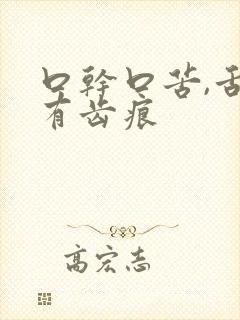 口幹口苦,舌
有齿痕
高宏志